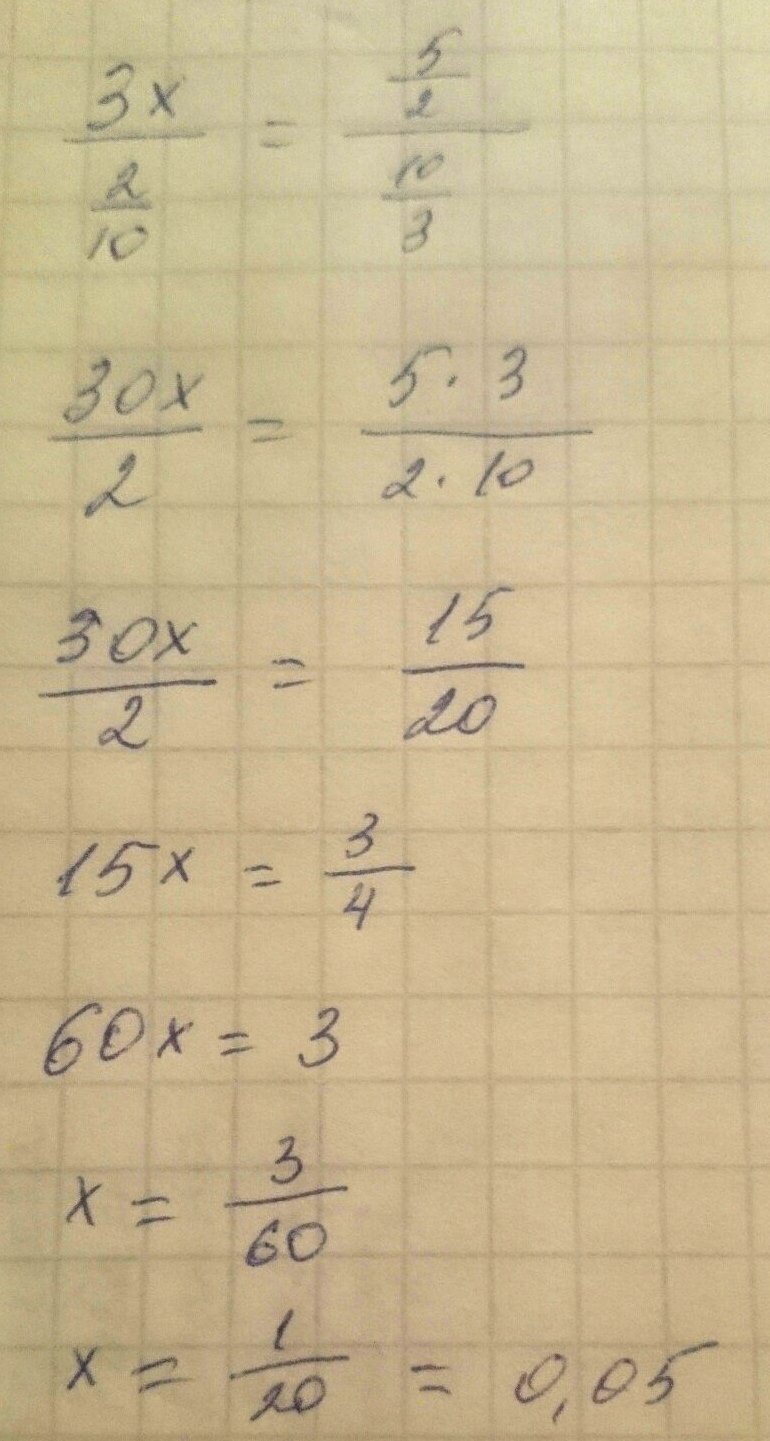 3x / (2/10) = (5/2) / (10/3)
30x / 2 = 5·3 / 2·10
30x / 2 = 15 / 20
15x = 3/4
60x = 3
x = 3/60
x = 1/20 = 0,05